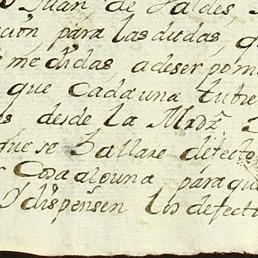 Juan de Valdes,
cion para las dudas q
medidas a de ser por m
que cada una tubie
es desde la Mrdz
que se hallare defecto
Cosa alguna para que
Y dispensen los defecto